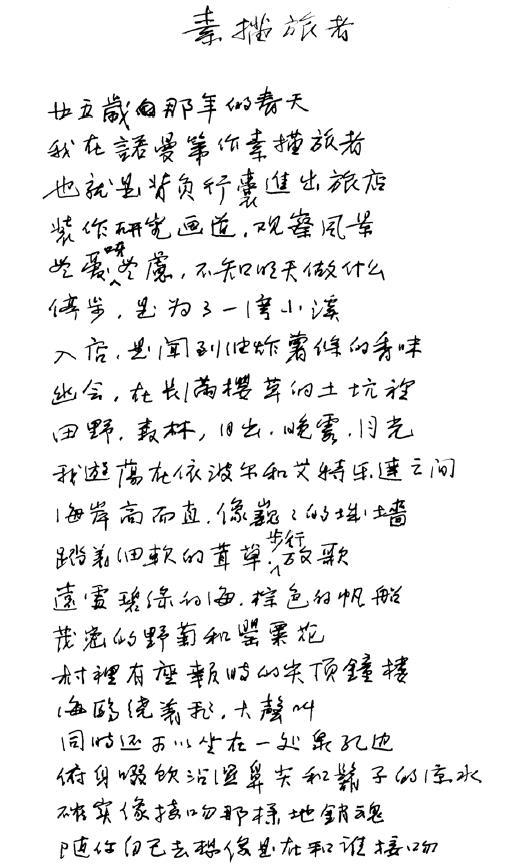 素描旅者
廿五歲那年的春天
我在諾曼第作素描旅者
也就是背负行囊進出旅店
裝作研究画道,观察风景
无爱呀无慮,不知明天做什么
停步,是为了一湾小溪
入店,是聞到油炸薯條的香味
幽会,在長满櫻草的土坑裡
田野,森林,日出,晚霧,月光
我遊蕩在依波尔和艾特乐達之间
海岸高而直,像巍巍的城墻
踏着细軟的茸草步行,放歌
遠處碧绿的海,棕色的帆船
茂密的野菊和罌粟花
村裡有座報時的尖頂鐘樓
海鷗繞着飛,大聲叫
同時还可以坐在一处泉孔边
俯身啜飲沾湿鼻尖和鬍子的涼水
確实像接吻那樣地銷魂
随你自己去想像是在和谁接吻